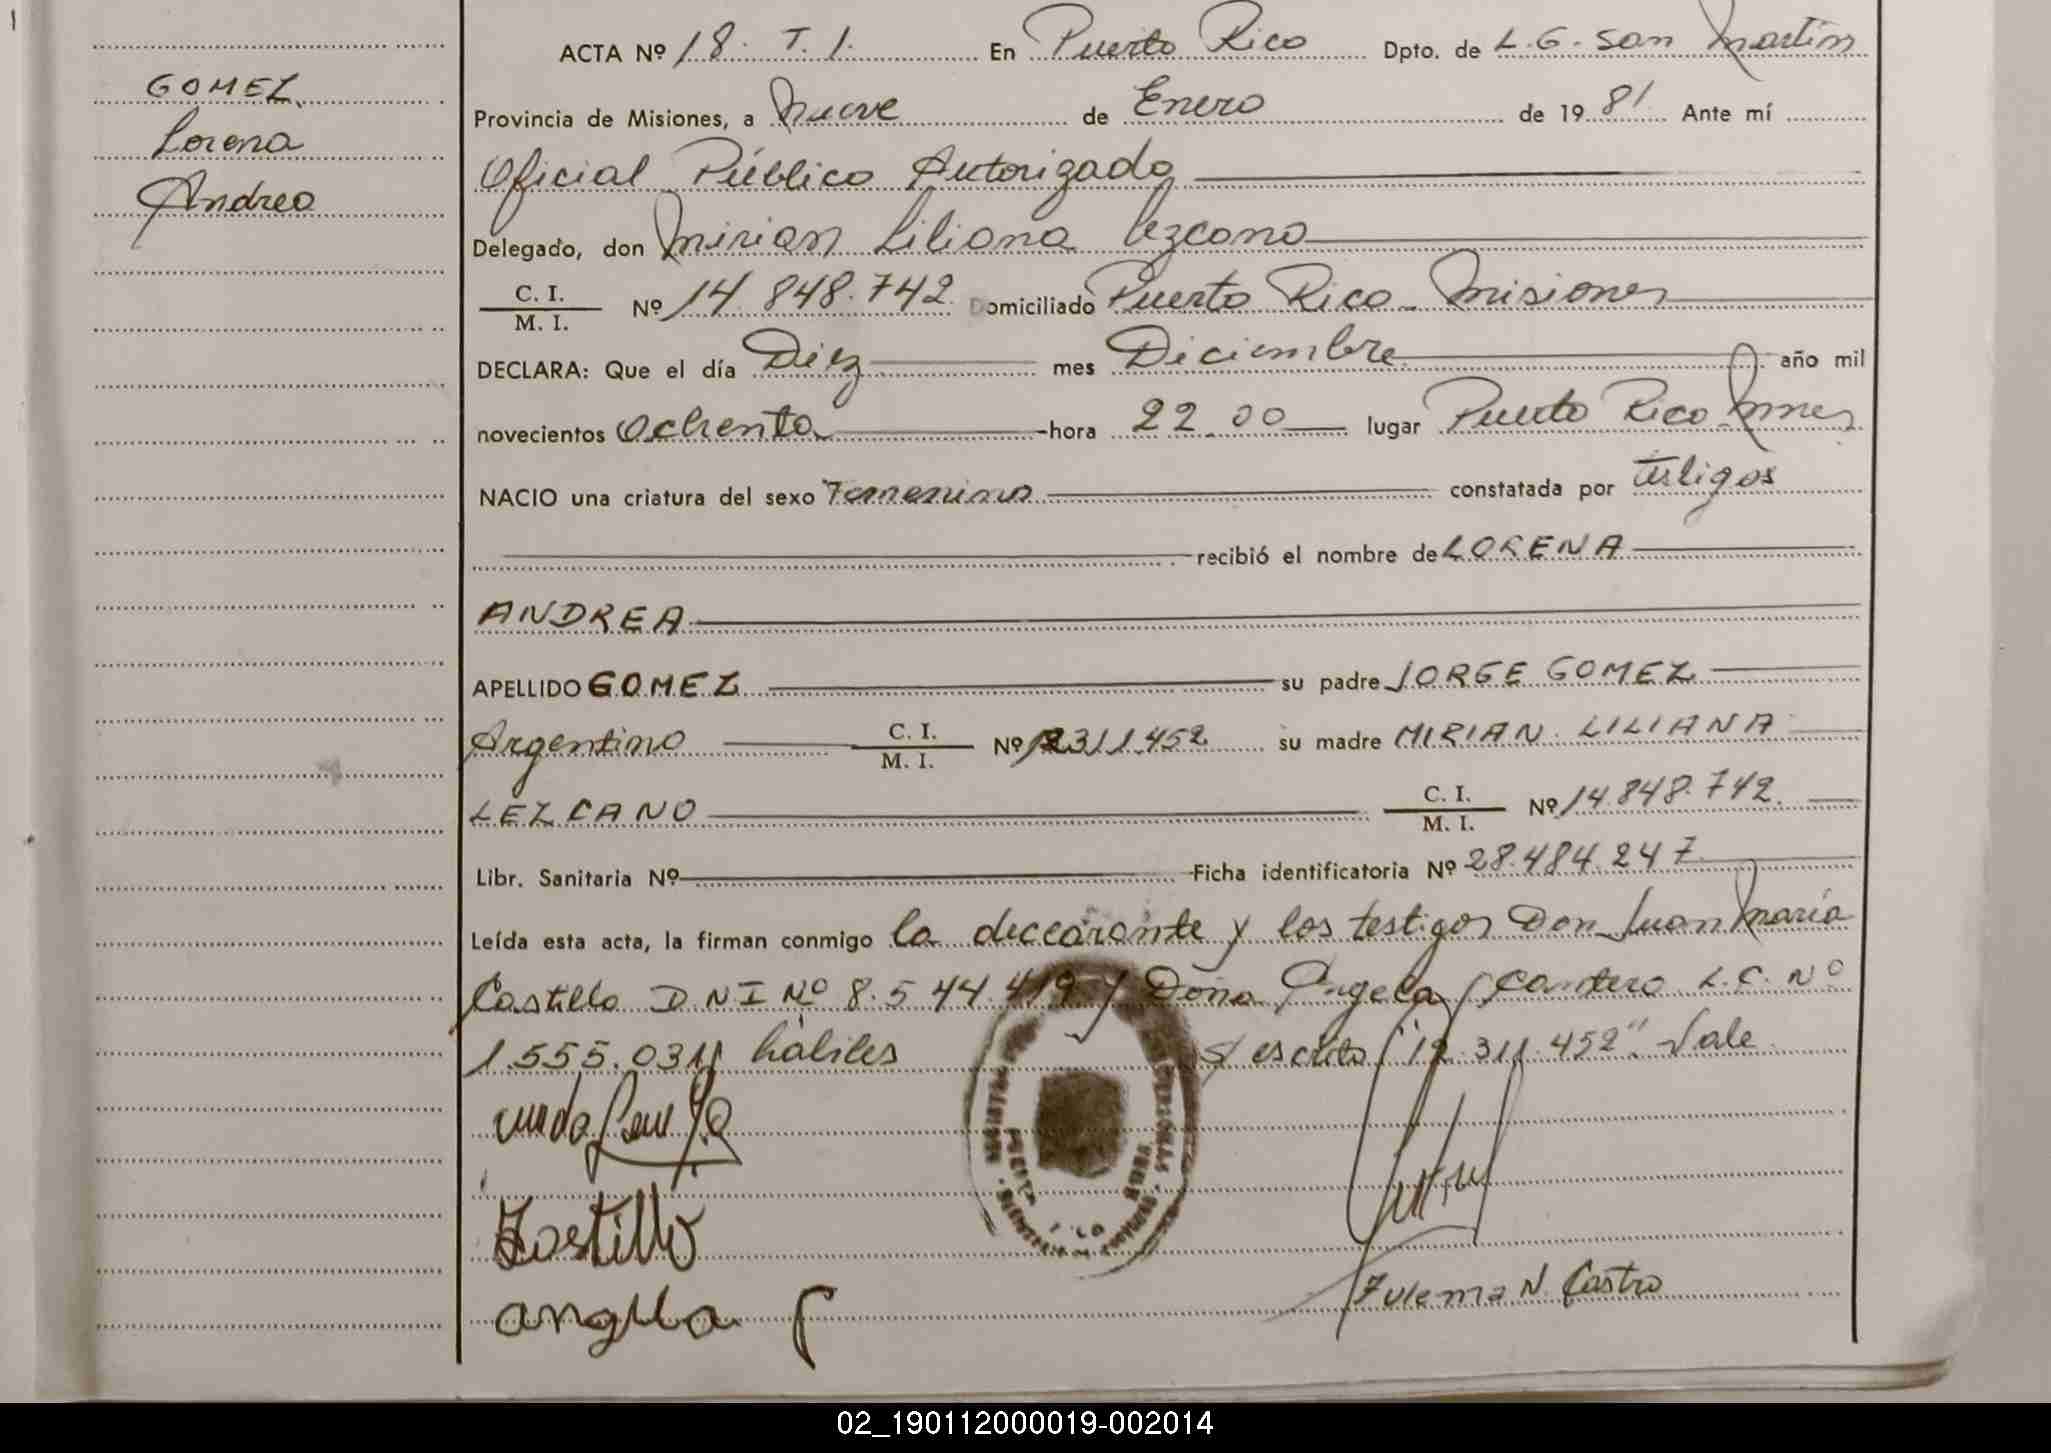 ACTA Nº 18. T. 1. En Puerto Rico Dpto. de L.G. San Martín
GOMEZ
Lorena
Andrea
Provincia de Misiones, a Nueve de Enero de 1981. Ante mí
Oficial Público Autorizado
Delegado, don Mirian Liliana Lezcano
C. I.
M. I. Nº 14.848.742. Domiciliado Puerto Rico - Misiones
DECLARA: Que el día Diez mes Diciembre año mil
novecientos Ochenta hora 22.00 lugar Puerto Rico Mnes
NACIO una criatura del sexo Femenino constatada por testigos
recibió el nombre de LORENA
ANDREA
APELLIDO GOMEZ su padre JORGE GOMEZ
Argentino C. I.
M. I. Nº 12311.452 su madre MIRIAN LILIANA
LEZCANO C. I.
M. I. Nº 14.848.742.
Libr. Sanitaria Nº Ficha identificatoria Nº 28.484.247
Leída esta acta, la firman conmigo la declarante y los testigos Don Juan María
Castillo D N I Nº 8.544.419 y Doña Angela Cantero L.C. Nº
1.555.031 hábiles S/ escrito "12.311.452" Vale
Castillo
angela C
Zulema N. Castro
02_190112000019-002014